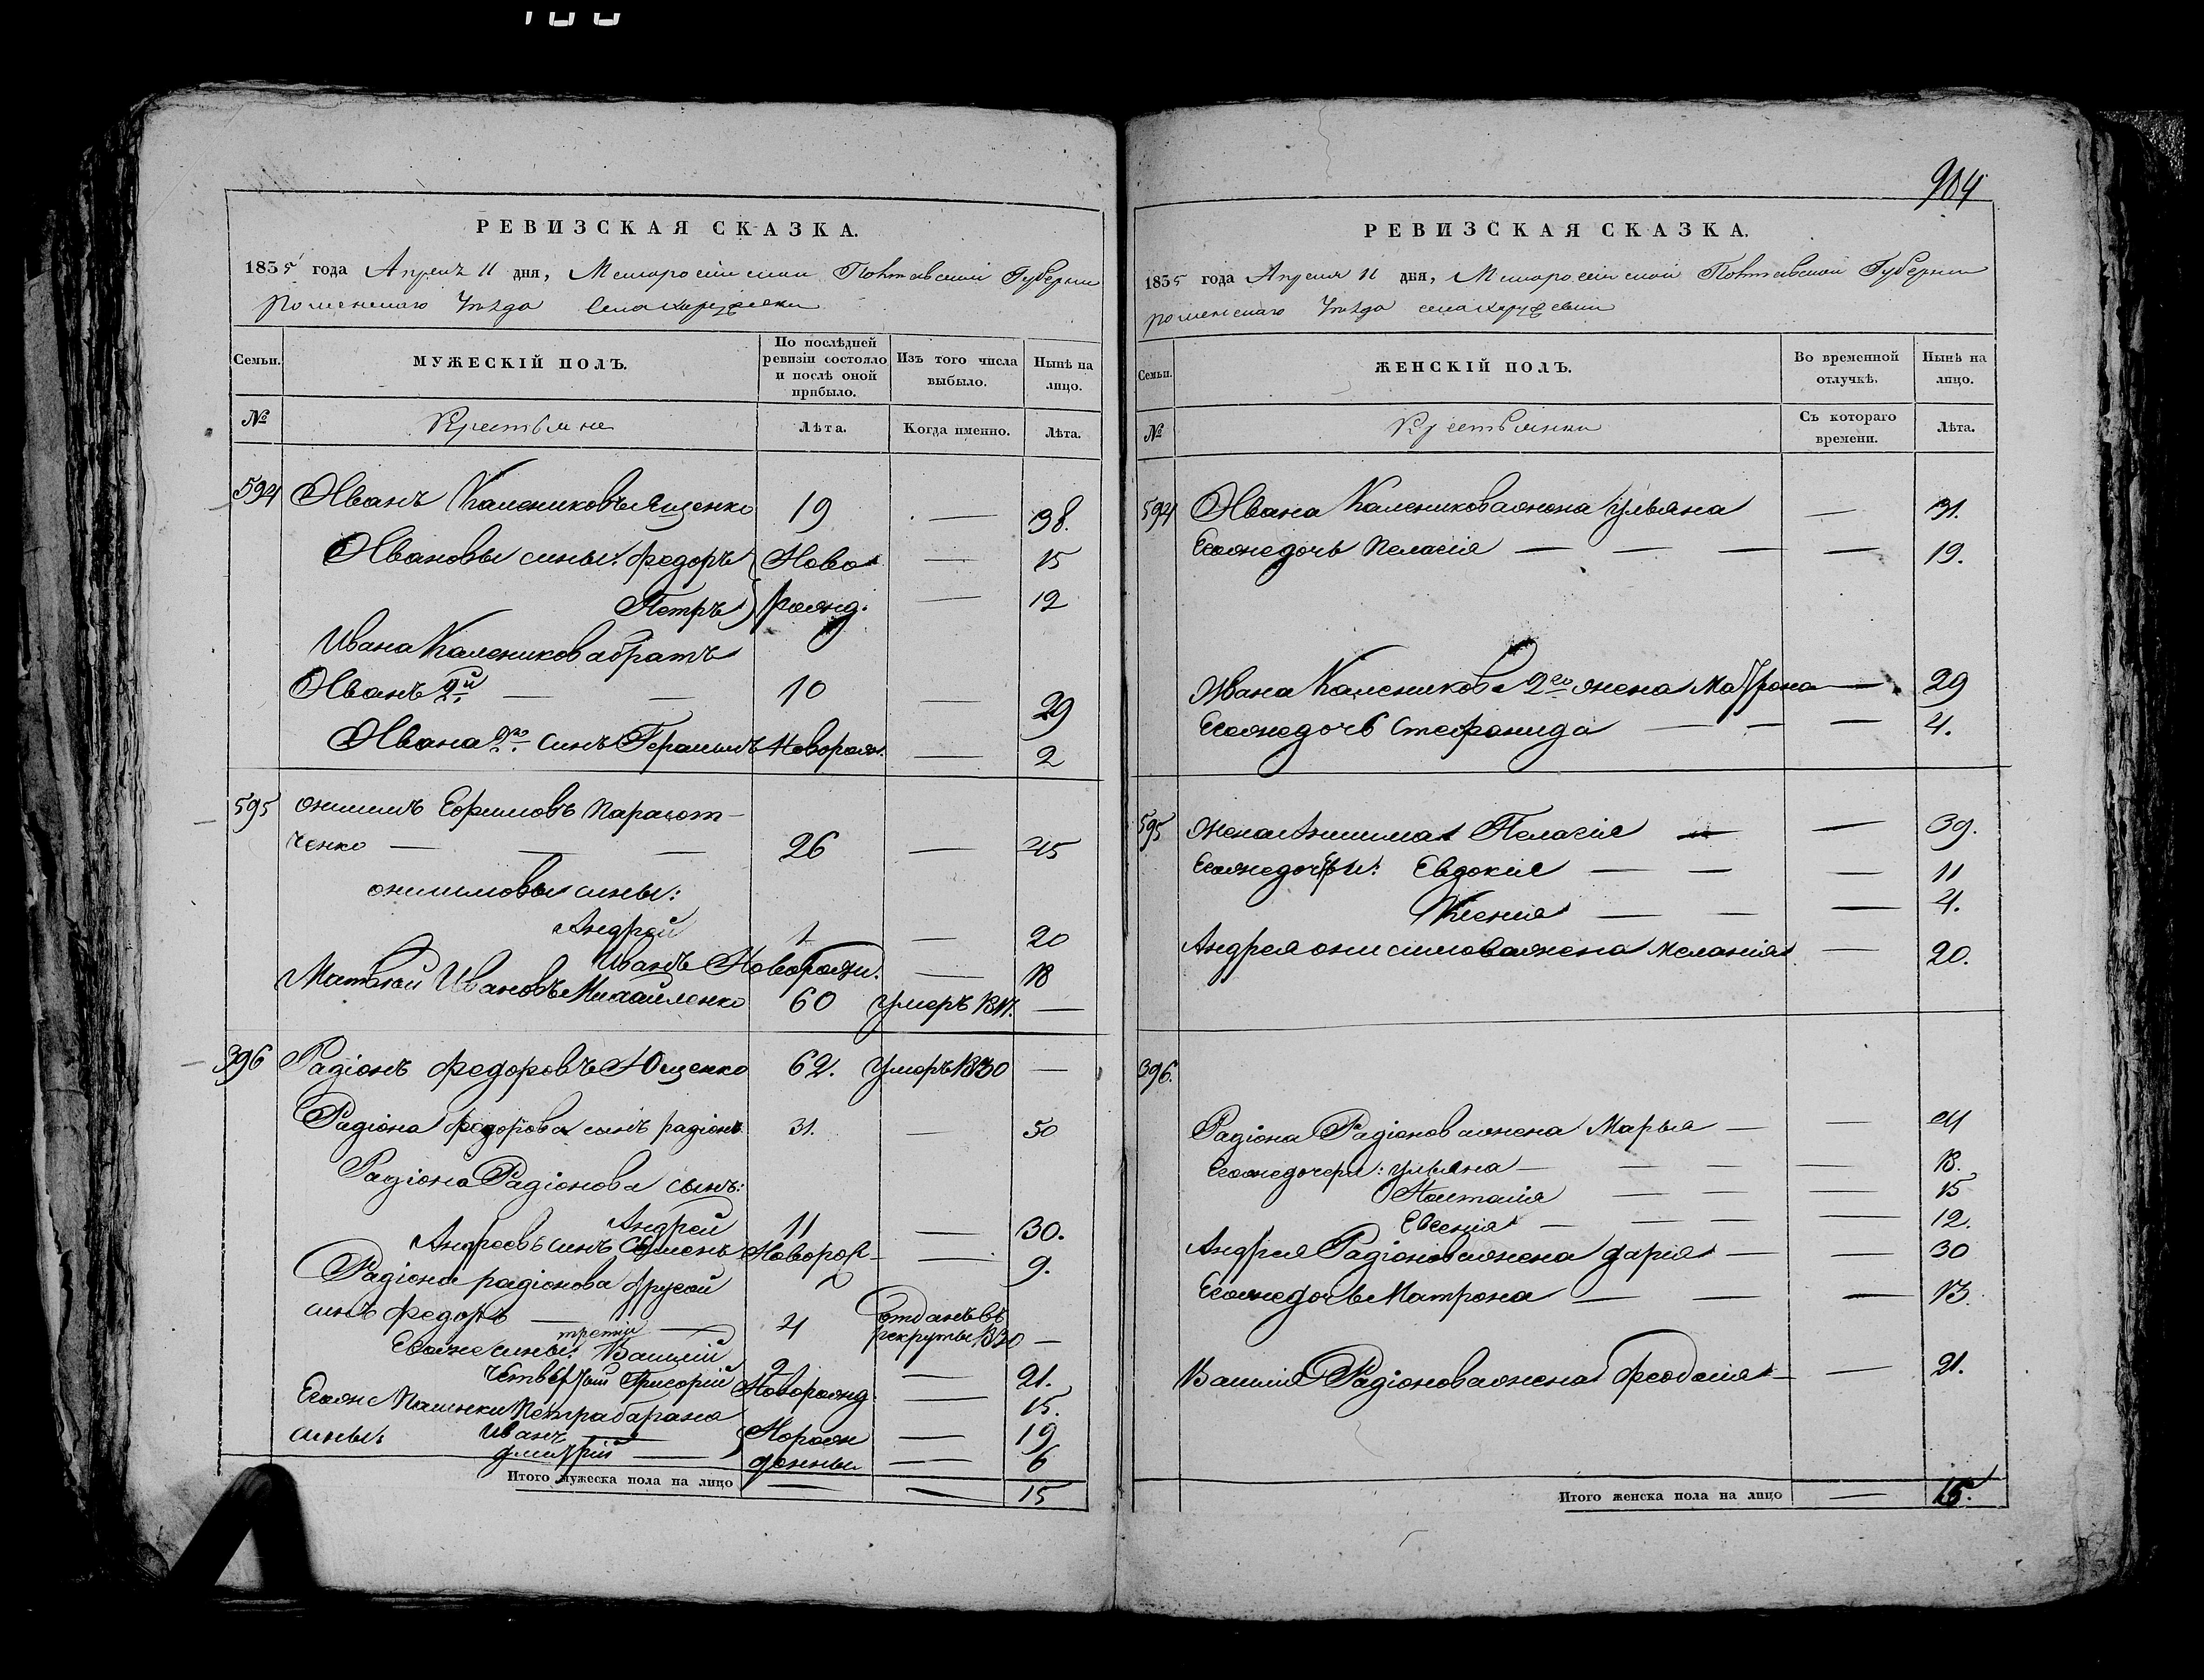 РЕВИЗСКАЯ СКАЗКА.
1835 года Апреля 11 дня, Малоросійской Полтавской Губерніи
роменскаго Уѣзда Села
Семьи.
МУЖЕСКІЙ ПОЛЪ.
По послѣдней ревизіи состояло и послѣ оной прибыло.
Изъ того числа выбыло.
Нынѣ на лицо.
№
Крестьяне
Лѣта.
Когда именно.
Лѣта.
594 Иванъ Калениковъ Ященко 19 — 38.
Ивановы сины: Федоръ Ново — 15
Петръ рожд. — 12
Ивана Каленикова братъ
Иванъ 2й — — 10 — 29
Ивана 2го синъ Герасимъ Новорож. — 2
595 Онисимъ Ефимовъ
ченко — — — 26 — 45
онисимовы сины:
Андрей 1 — 20
Иванъ Новорожд. — 18
Матвей Ивановъ Михайленко 60 умеръ 1817. —
396 Радіонъ Федоровъ Ющенко 62. умеръ 1830 —
Радіона Федорова сынъ радіонъ 31. — 50
Радіона Радіонова сынъ:
Андрей 11 — 30.
Андреевъ синъ Семенъ Новорож — 9.
Радіона радіонова другой
синъ Федоръ — — 4 отданъ въ рекруты 1830 —
третій
Егожъ сины: Василій 2 — 21.
четвертый Григорій Новорожд. — 15.
Егожъ Петра барана
сины: Иванъ — Норож — 19
дмитрій — денныи — 6
Итого мужеска пола на лицо — — 15
904
РЕВИЗСКАЯ СКАЗКА.
1835 года Апреля 11 дня, Малоросійской Полтавской Губерніи
роменскаго Уѣзда села
Семьи.
ЖЕНСКІЙ ПОЛЪ.
Во временной отлучкѣ.
Нынѣ на лицо.
№
Крестьянки
Съ котораго времени.
Лѣта.
594 Ивана Каленикова жена Ульяна — 31.
Егожъ дочь Пелагія — — — — 19.
Ивана Каленикова 2го жена Матрона — 29
Егожъ дочь Стефанида — — — 4.
595 жена Анисима Пелагія — — 39.
Егожъ дочери: Евдокія — — — 11
Ксенія — — — 4.
Андрея онисимова жена Меланія — 20.
396.
Радіона Радіонова жена Марья — —
Егожъ дочери: ульяна — — — — 18.
Наталія — — — 15
Евгенія — — — — 12.
Андрея Радіонова жена дарія — — 30
Егожъ дочь Матрона — — — 13.
Василія Радіонова жена Феодосія — — 21.
Итого женска пола на лицо — 15.